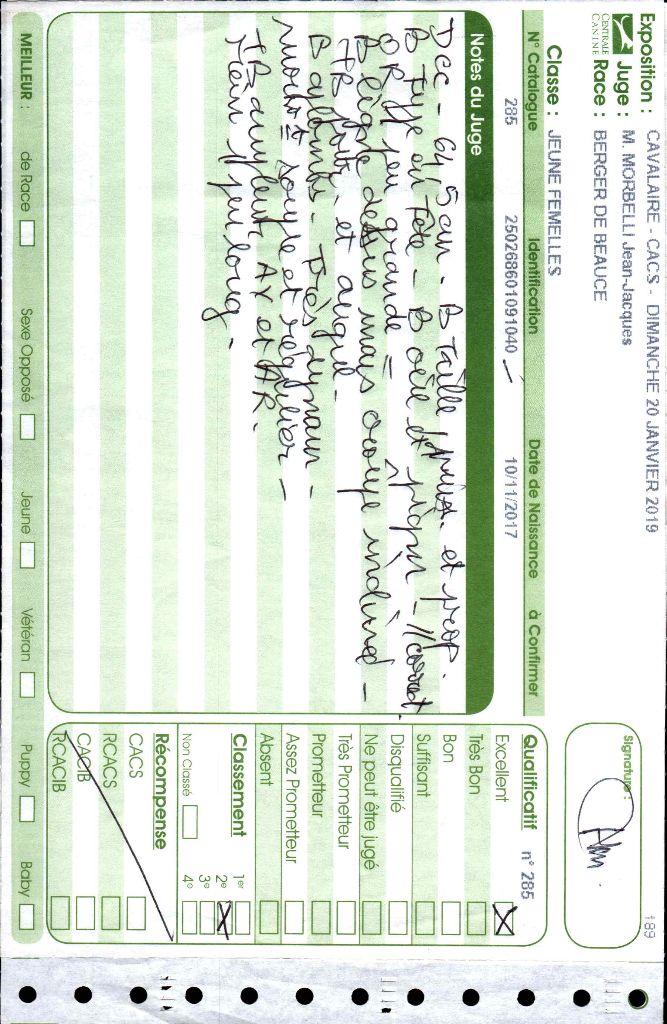 Exposition : CAVALAIRE - CACS - DIMANCHE 20 JANVIER 2019
CENTRALE CANINE
Juge : M. MORBELLI Jean-Jacques
Race : BERGER DE BEAUCE
Classe : JEUNE FEMELLES
Signature :
189
N° Catalogue Identification Date de Naissance à Confirmer
285 250268601091040 10/11/2017
Notes du Juge
Dcc - 64,5 cm - B Taille et prop.
B Type en Tête - B œil et - // correct
OR 1 peu grande =
B ligne dessus mais croupe inclinée -
TB poit. et angul.
B aplombs. Très dynam -
souple et régulier -
TB ampleur AV et AR.
1 peu long.
Qualificatif n° 285
Excellent X
Très Bon
Bon
Suffisant
Disqualifié
Ne peut être jugé
Très Prometteur
Prometteur
Assez Prometteur
Absent
Classement
Non Classé
1er
2e X
3e
4e
Récompense
CACS
RCACS
CACIB
RCACIB
MEILLEUR : de Race Sexe Opposé Jeune Vétéran Puppy Baby